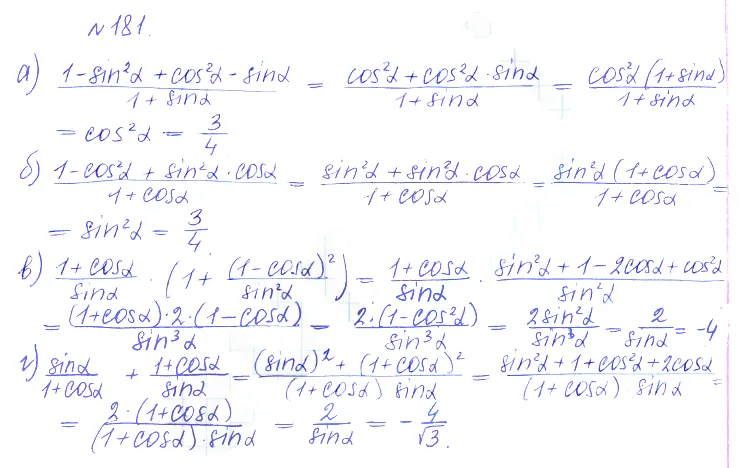 N 181.
а) (1 - sin²α + cos²α - sinα)/(1 + sinα) = (cos²α + cos²α · sinα)/(1 + sinα) = (cos²α (1 + sinα))/(1 + sinα)
= cos²α = 3/4
б) (1 - cos²α + sin²α · cosα)/(1 + cosα) = (sin²α + sin²α · cosα)/(1 + cosα) = (sin²α (1 + cosα))/(1 + cosα) =
= sin²α = 3/4
в) (1 + cosα)/sinα · (1 + (1 - cosα)²/sin²α) = (1 + cosα)/sinα · (sin²α + 1 - 2cosα + cos²α)/sin²α
= ((1 + cosα) · 2 · (1 - cosα))/sin³α = (2 · (1 - cos²α))/sin³α = 2sin²α/sin³α = 2/sinα = -4
г) sinα/(1 + cosα) + (1 + cosα)/sinα = ((sinα)² + (1 + cosα)²)/((1 + cosα) sinα) = (sin²α + 1 + cos²α + 2cosα)/((1 + cosα) sinα) =
= (2 · (1 + cosα))/((1 + cosα) · sinα) = 2/sinα = - 4/√3.